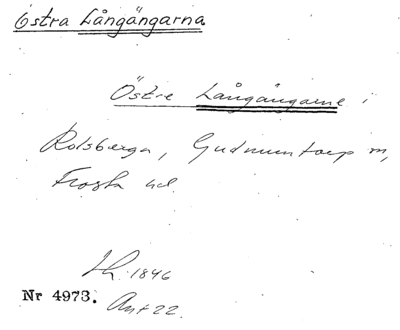 Östra Långängarna
Östre Långängarne i
Rolsberga, Gudmuntorp sn,
Frosta hd.
Lh. 1846
Nr 4973. Ant 22